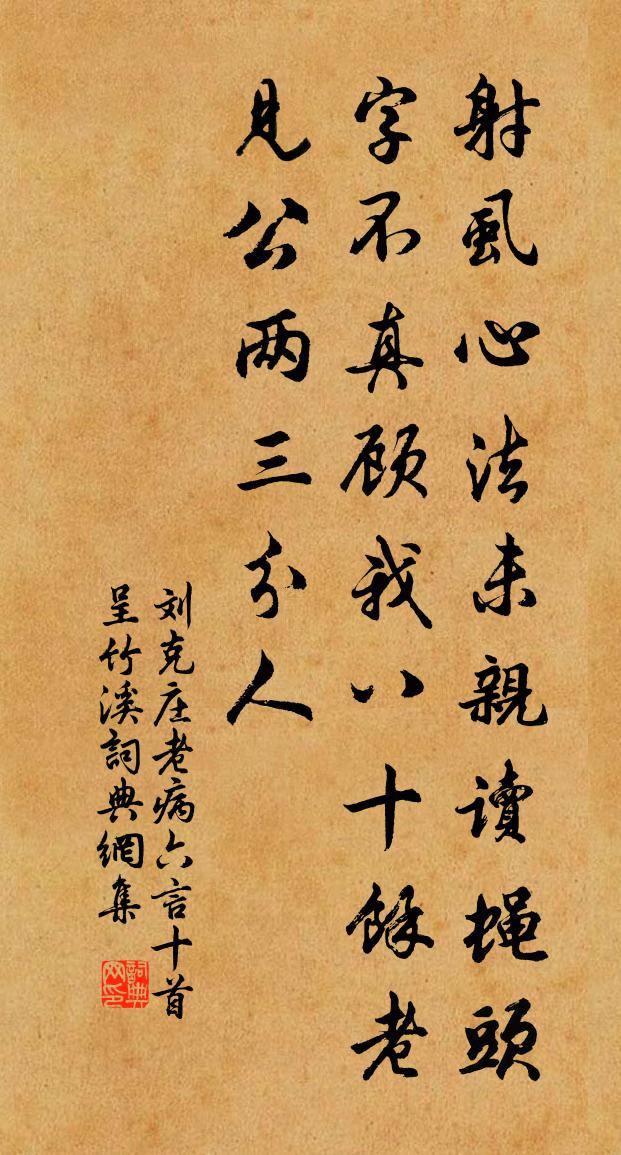 射虱心法未親讀蝇頭
字不真顾我八十餘老
見公两三分人
刘克庄老病六言十首
呈竹溪詞典網集
詞典
网印